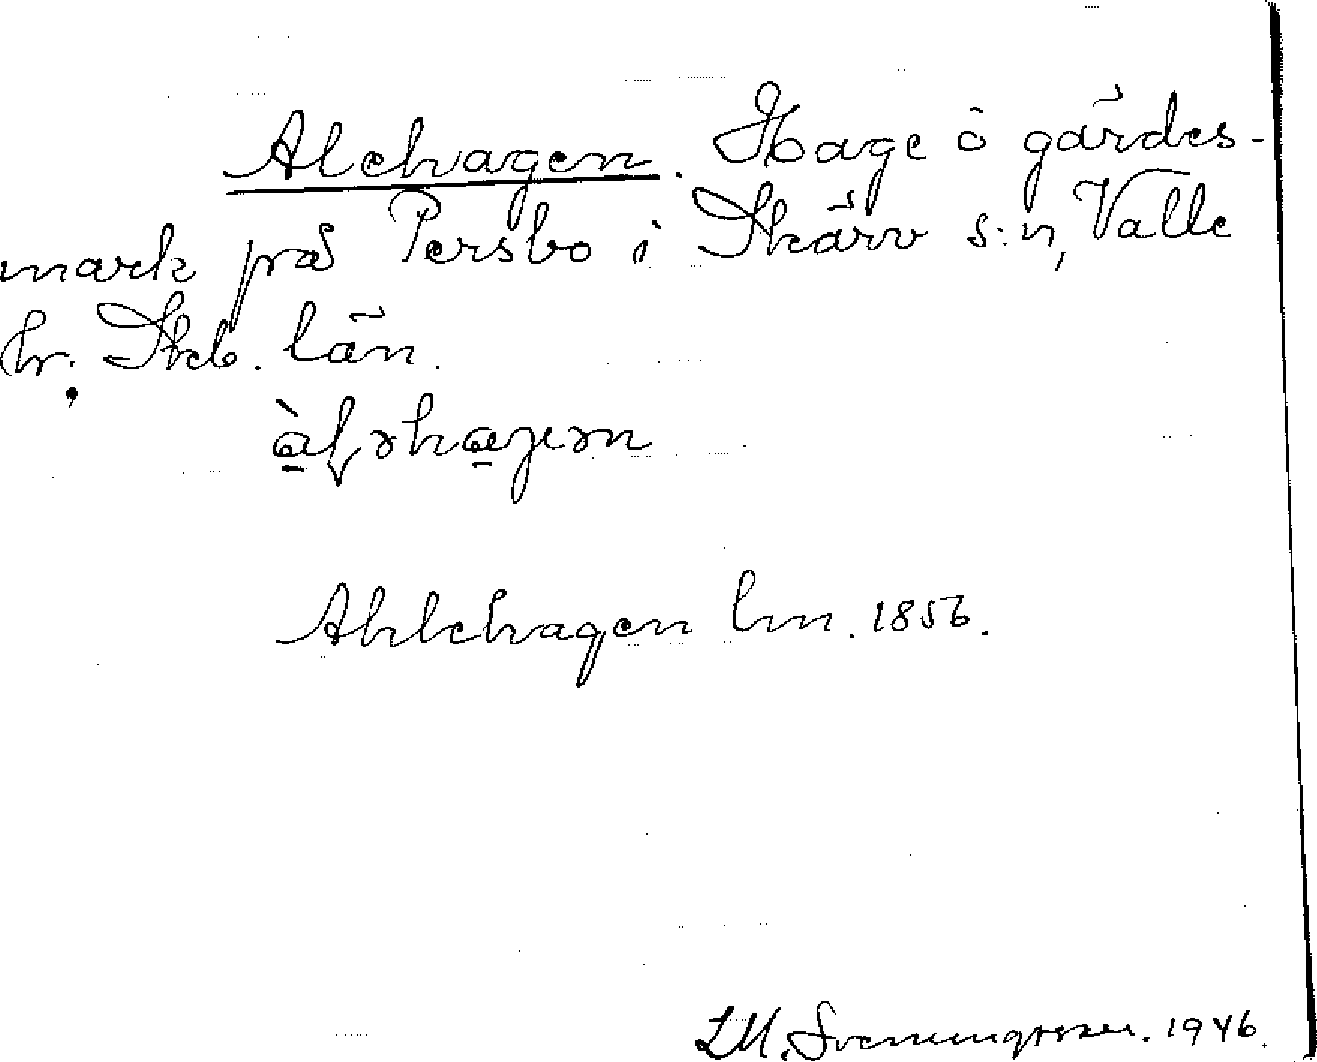 Alehagen. Hage o gärdes-
mark på Persbo i Skärv s:n, Valle
hr. Skb. län.
Ahlehagen lm. 1856.
LM. Svenungsson. 1946.